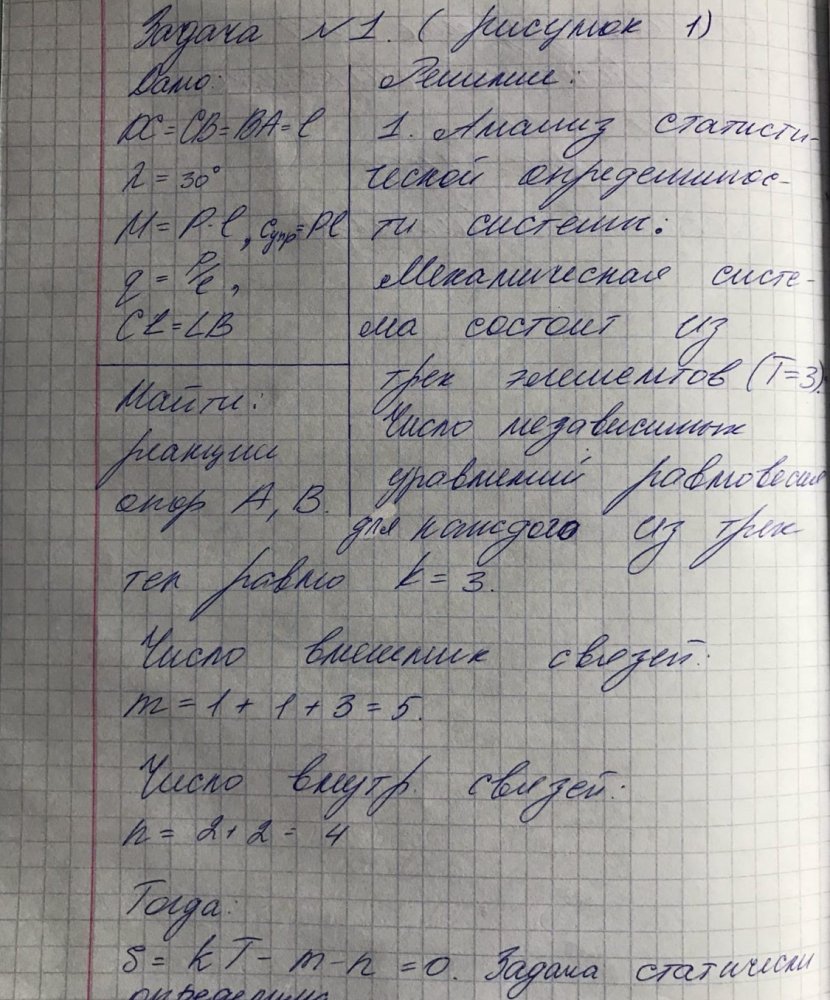 Задача №1. (рисунок 1)
Дано:
DC=CB=BA=l
λ=30°
M=P·l, Cупр=Pl
q=P/l,
CL=LB
Найти:
реакции
опор A, B.
Решение:
1. Анализ статисти-
ческой определеннос-
ти системы:
Механическая систе-
ма состоит из
трех элементов (T=3).
Число независимых
уравнений равновесия
для каждого из трех
тел равно k=3.
Число внешних связей:
m=1+1+3=5.
Число внутр связей:
n=2+2=4
Тогда:
S=kT-m-n=0. Задача статически
определима